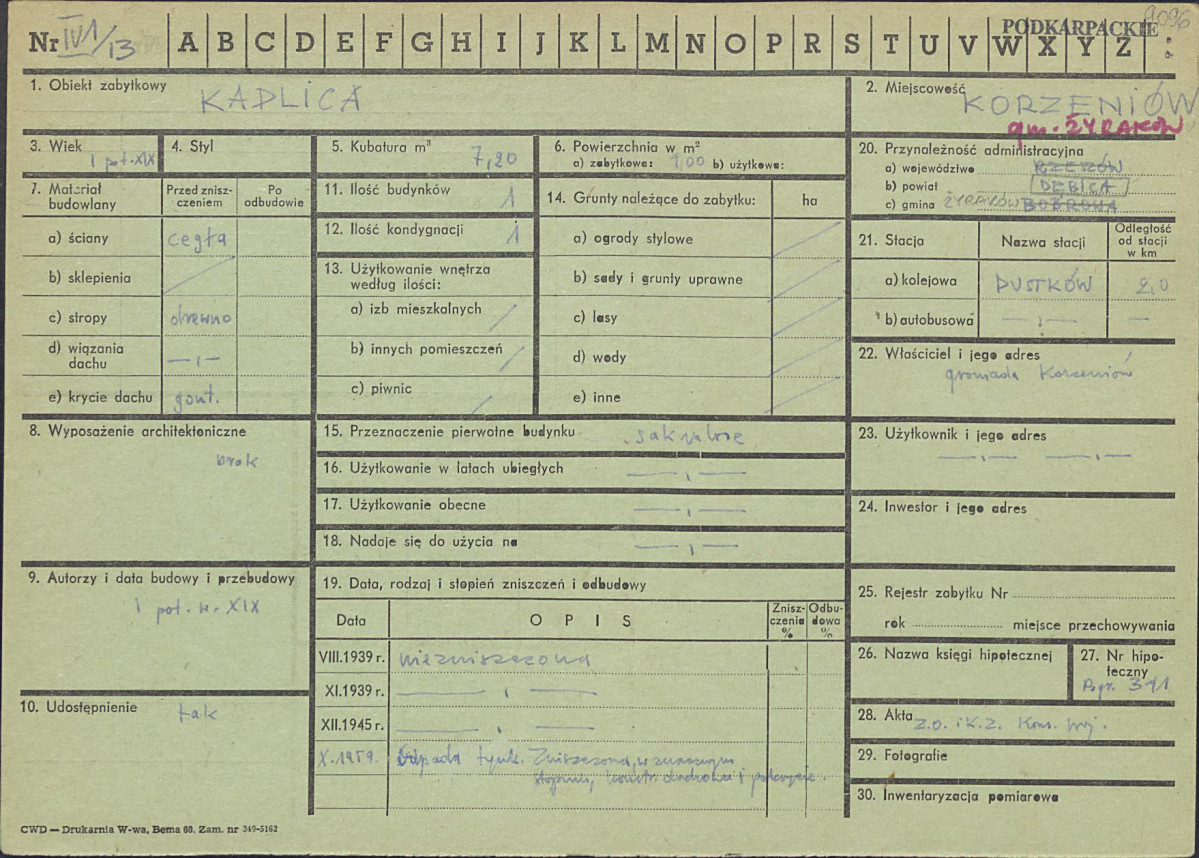 9096
PODKARPACKIE
Nr IV1/13 A B C D E F G H I J K L M N O P R S T U V W X Y Z
1. Obiekt zabytkowy
KAPLICA
2. Miejscowość
KORZENIÓW
gm. ŻYRAKÓW
3. Wiek
I poł. XIX
4. Styl
5. Kubatura m³
7,20
6. Powierzchnia w m²
a) zabytkowa: 1,00 b) użytkowa:
20. Przynależność administracyjna
a) województwo RZESZÓW
b) powiat DĘBICA
c) gmina ŻYRAKÓW BOBROWA
7. Materiał budowlany
Przed znisz-
czeniem
Po
odbudowie
a) ściany cegła
b) sklepienia
c) stropy drewno
d) wiązania
dachu —„—
e) krycie dachu gont.
11. Ilość budynków
1
12. Ilość kondygnacji
1
13. Użytkowanie wnętrza
według ilości:
a) izb mieszkalnych
b) innych pomieszczeń
c) piwnic
14. Grunty należące do zabytku:
ha
a) ogrody stylowe
b) sady i grunty uprawne
c) lasy
d) wody
e) inne
21. Stacja
Nazwa stacji
Odległość
od stacji
w km
a) kolejowa PUSTKÓW 2,0
b) autobusowa —„— —
22. Właściciel i jego adres
gromada Korzeniów
8. Wyposażenie architektoniczne
brak
15. Przeznaczenie pierwotne budynku sakralne
16. Użytkowanie w latach ubiegłych —„—
17. Użytkowanie obecne —„—
18. Nadaje się do użycia na —„—
23. Użytkownik i jego adres
—„— —„—
24. Inwestor i jego adres
9. Autorzy i data budowy i przebudowy
I poł. w. XIX
10. Udostępnienie
tak
19. Data, rodzaj i stopień zniszczeń i odbudowy
Data
OPIS
Znisz-
czenia
%
Odbu-
dowa
%
VIII.1939 r. niezniszczona
XI.1939 r. —„—
XII.1945 r. —„—
X.1959. Odpada tynk. Zniszczona, w znacznym
stopniu, konstr. dachowa i pokrycie.
25. Rejestr zabytku Nr
rok miejsce przechowywania
26. Nazwa księgi hipotecznej
27. Nr hipo-
teczny
Pgr. 341
28. Akta Z.O. i K.Z. Kons. Woj.
29. Fotografie
30. Inwentaryzacja pomiarowa
CWD — Drukarnia W-wa, Bema 60. Zam. nr 349-5162